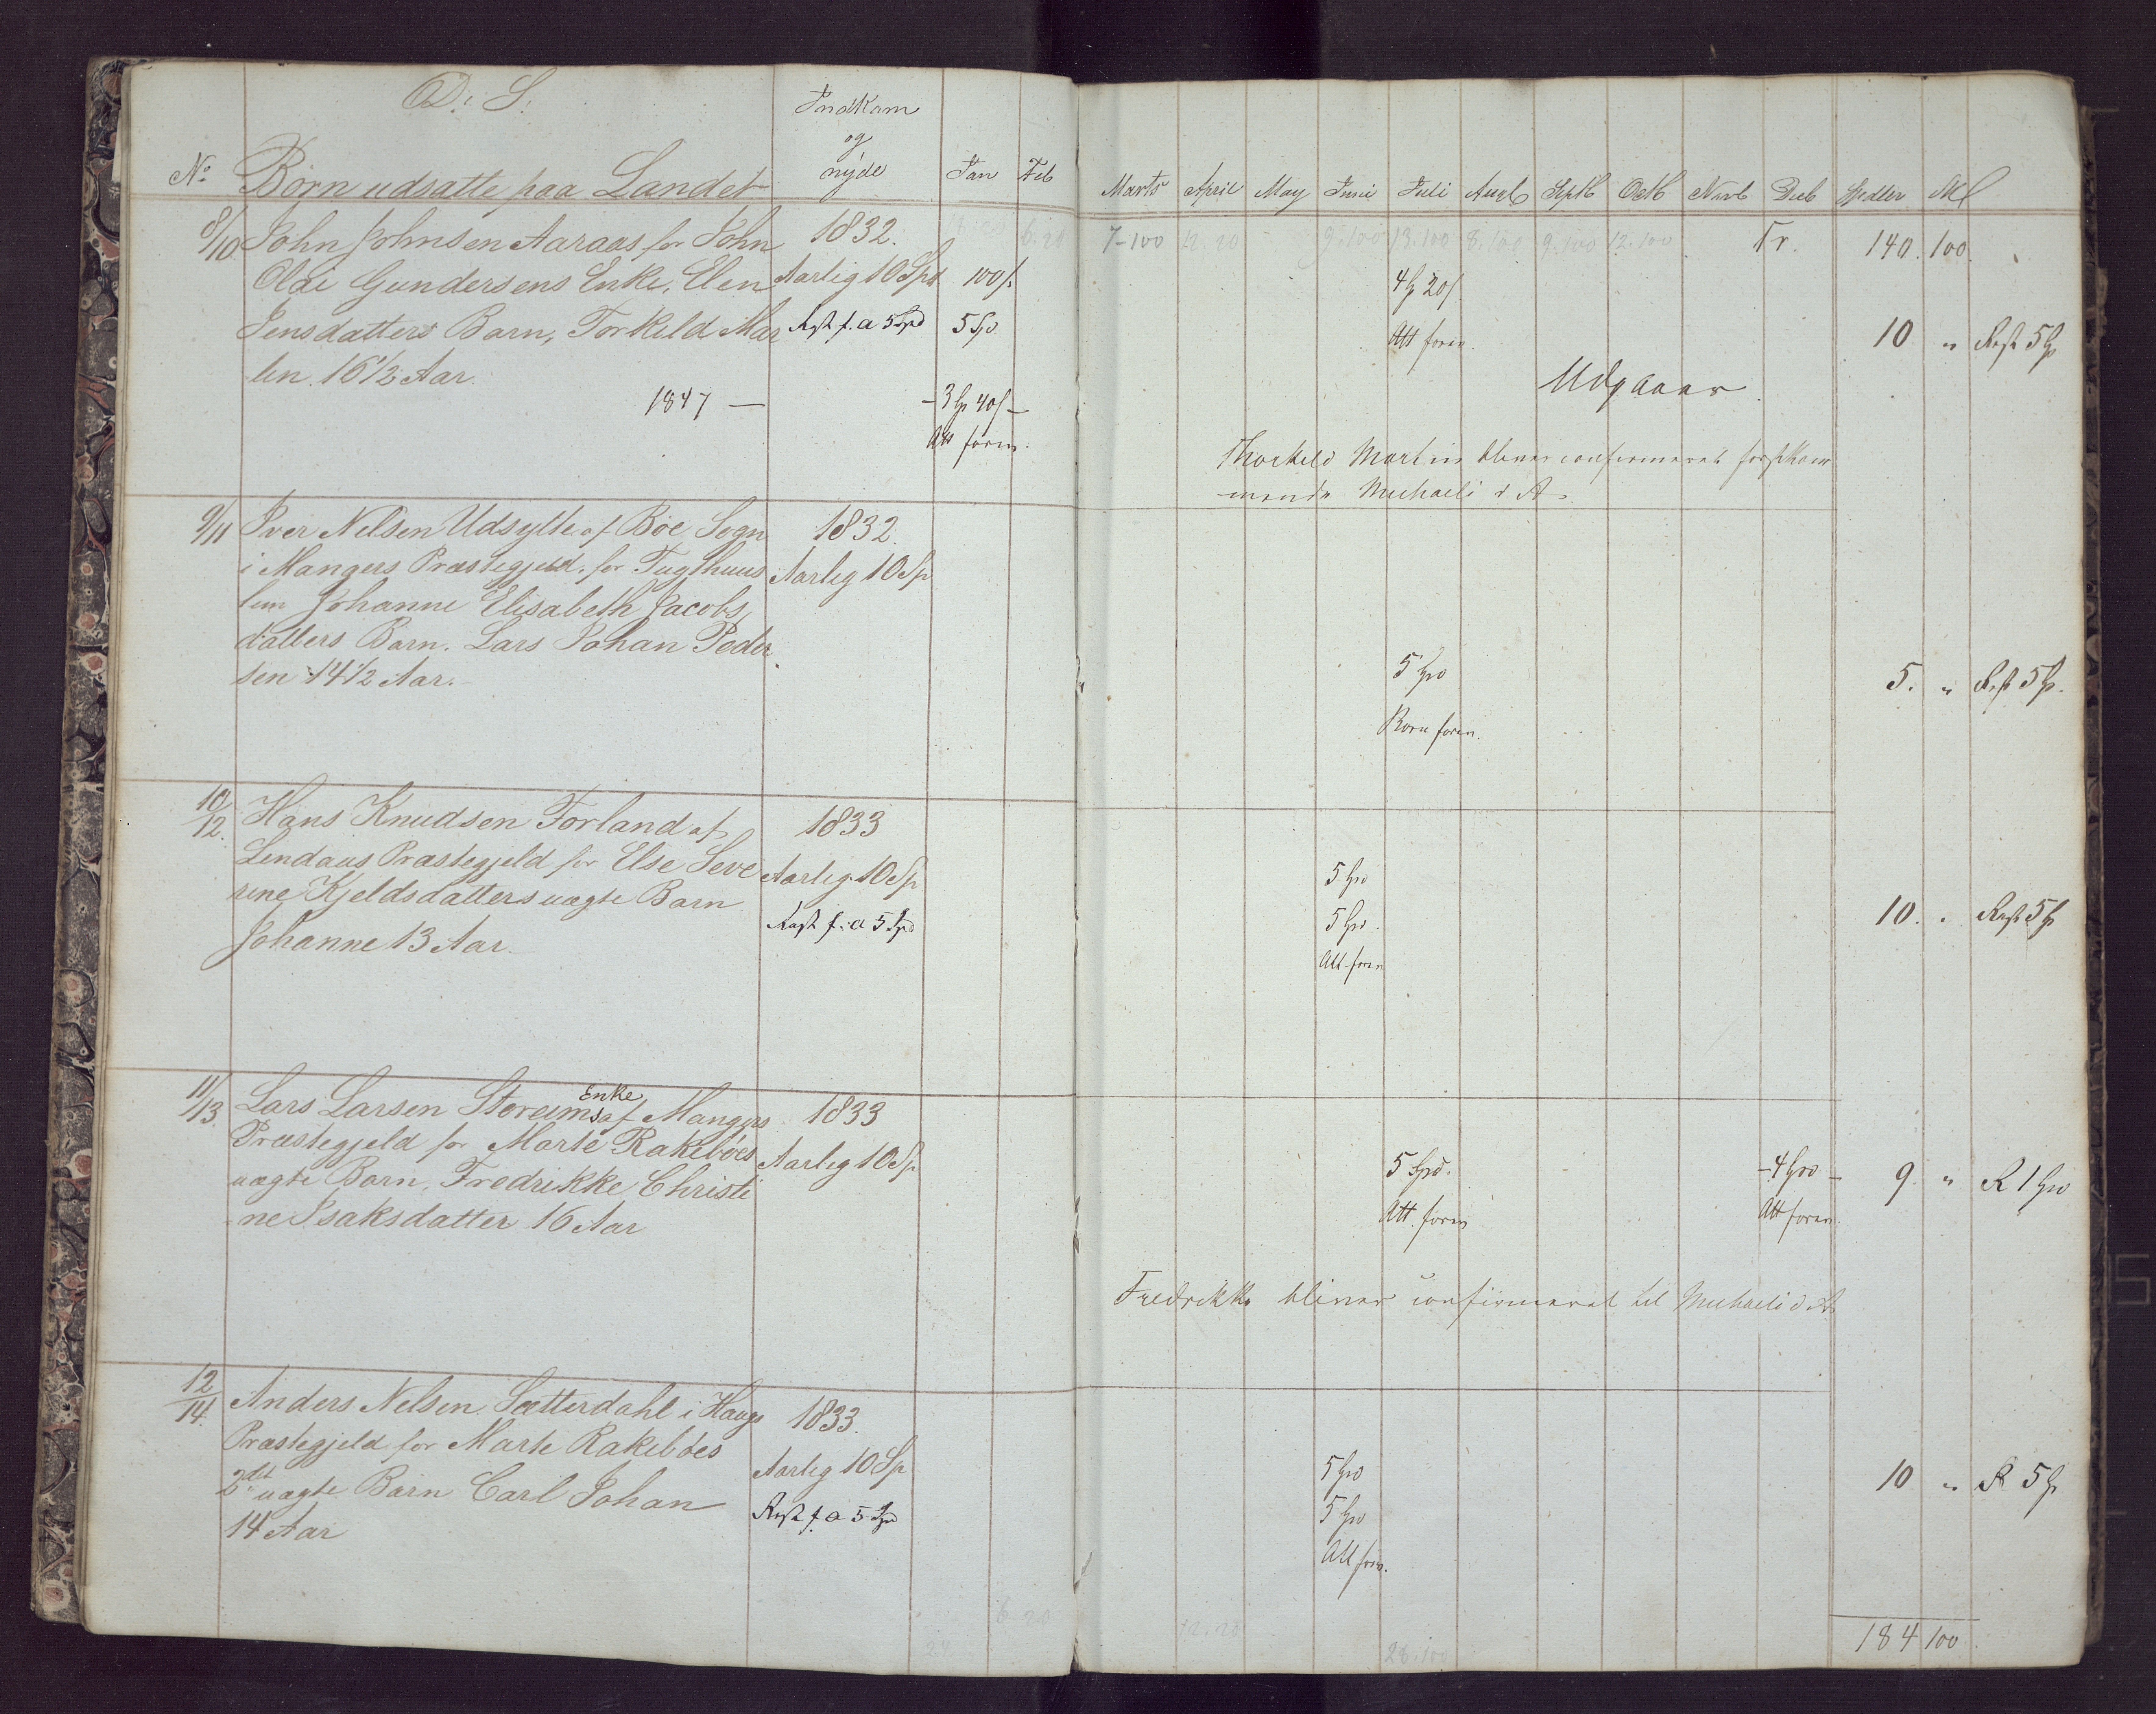 D: S:
Indkom
og
nyde
No Børn udsatte paa Landet
Jan Feb Marts April May Junii Juli Augb Septb Octb Novb Deb Spdler Ml
8/10 John Johnsen Aaraas for John
Oldi Gundersens Enke, Elen
Jensdatters Barn, Torkild Mar
lin. 16 1/2 Aar.
1847 —
1832.
Aarlig 10 Spd
Rest f. a 5 Spd
100 s.
5 Spd.
- 3 Sp 40 s -
Att foren.
6.20 7-100 12.20 9.100 13.100 8.100 9.100 12.100 Tr. 140. 100.
4 Sp 20 s.
Att foren.
10 " Rest 5 Sp
Udgaaer.
Thorkild Martin bliver confirmeret førstkom
mende Michaeli d. A.
9/11 Iver Nelsen Udsylte af Bøe Sogn
i Mangers Præstegjeld. for Tugthuus
lem Johanne Elisabeth Jacobs
datters Barn. Lars Johan Peder
sen 14 1/2 Aar.
1832.
Aarlig 10 Sp
5 Spd
Korn foren.
5. " Rest 5 Sp.
10/12. Hans Knudsen Forland af
Lindaas Præstegjeld for Else Seve
rine Kjeldsdatters uægte Barn
Johanne 13 Aar.
1833
Aarlig 10 Sp.
Rest f. a 5 Spd
5 Spd
5 Spd.
Att foren
10. " Rest 5 Sp
11/13. Lars Larsen Storeims Enke af Mangers
Præstegjeld for Marte Rakebøes
uægte Barn, Fredrikke Christi
ne Isaksdatter 16 Aar
1833
Aarlig 10 Sp
5 Spd.
Att. foren
- 4 Spd -
Att foren.
9 " R 1 Spd
Fredrikke bliver confirmeret til Michaeli d. A.
12/14. Anders Nelsen Sætterdahl i Haugs
Præstegjeld for Marte Rakebøes
2det uægte Barn Carl Johan
14 Aar
1833.
Aarlig 10 Sp
Rest f. a 5 Spd
5 Spd
5 Spd
Att foren.
10 " R 5 Sp
6.20
12.20
28.100
184 100.